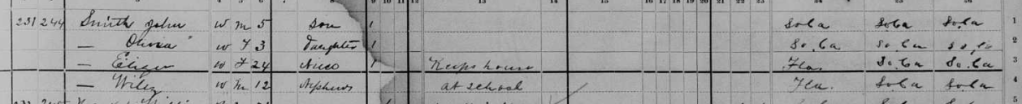 231 244 Smith John W M 5 Son 1 So Ca So Ca So Ca 1
— Olivia W F 3 Daughter 1 So. Ca So. Ca So, Ca 2
— W F 24 Niece Keeps house Fla. So. Ca So. Ca 3
— Wiley W M 12 Nephew at school Fla. So Ca So Ca 4